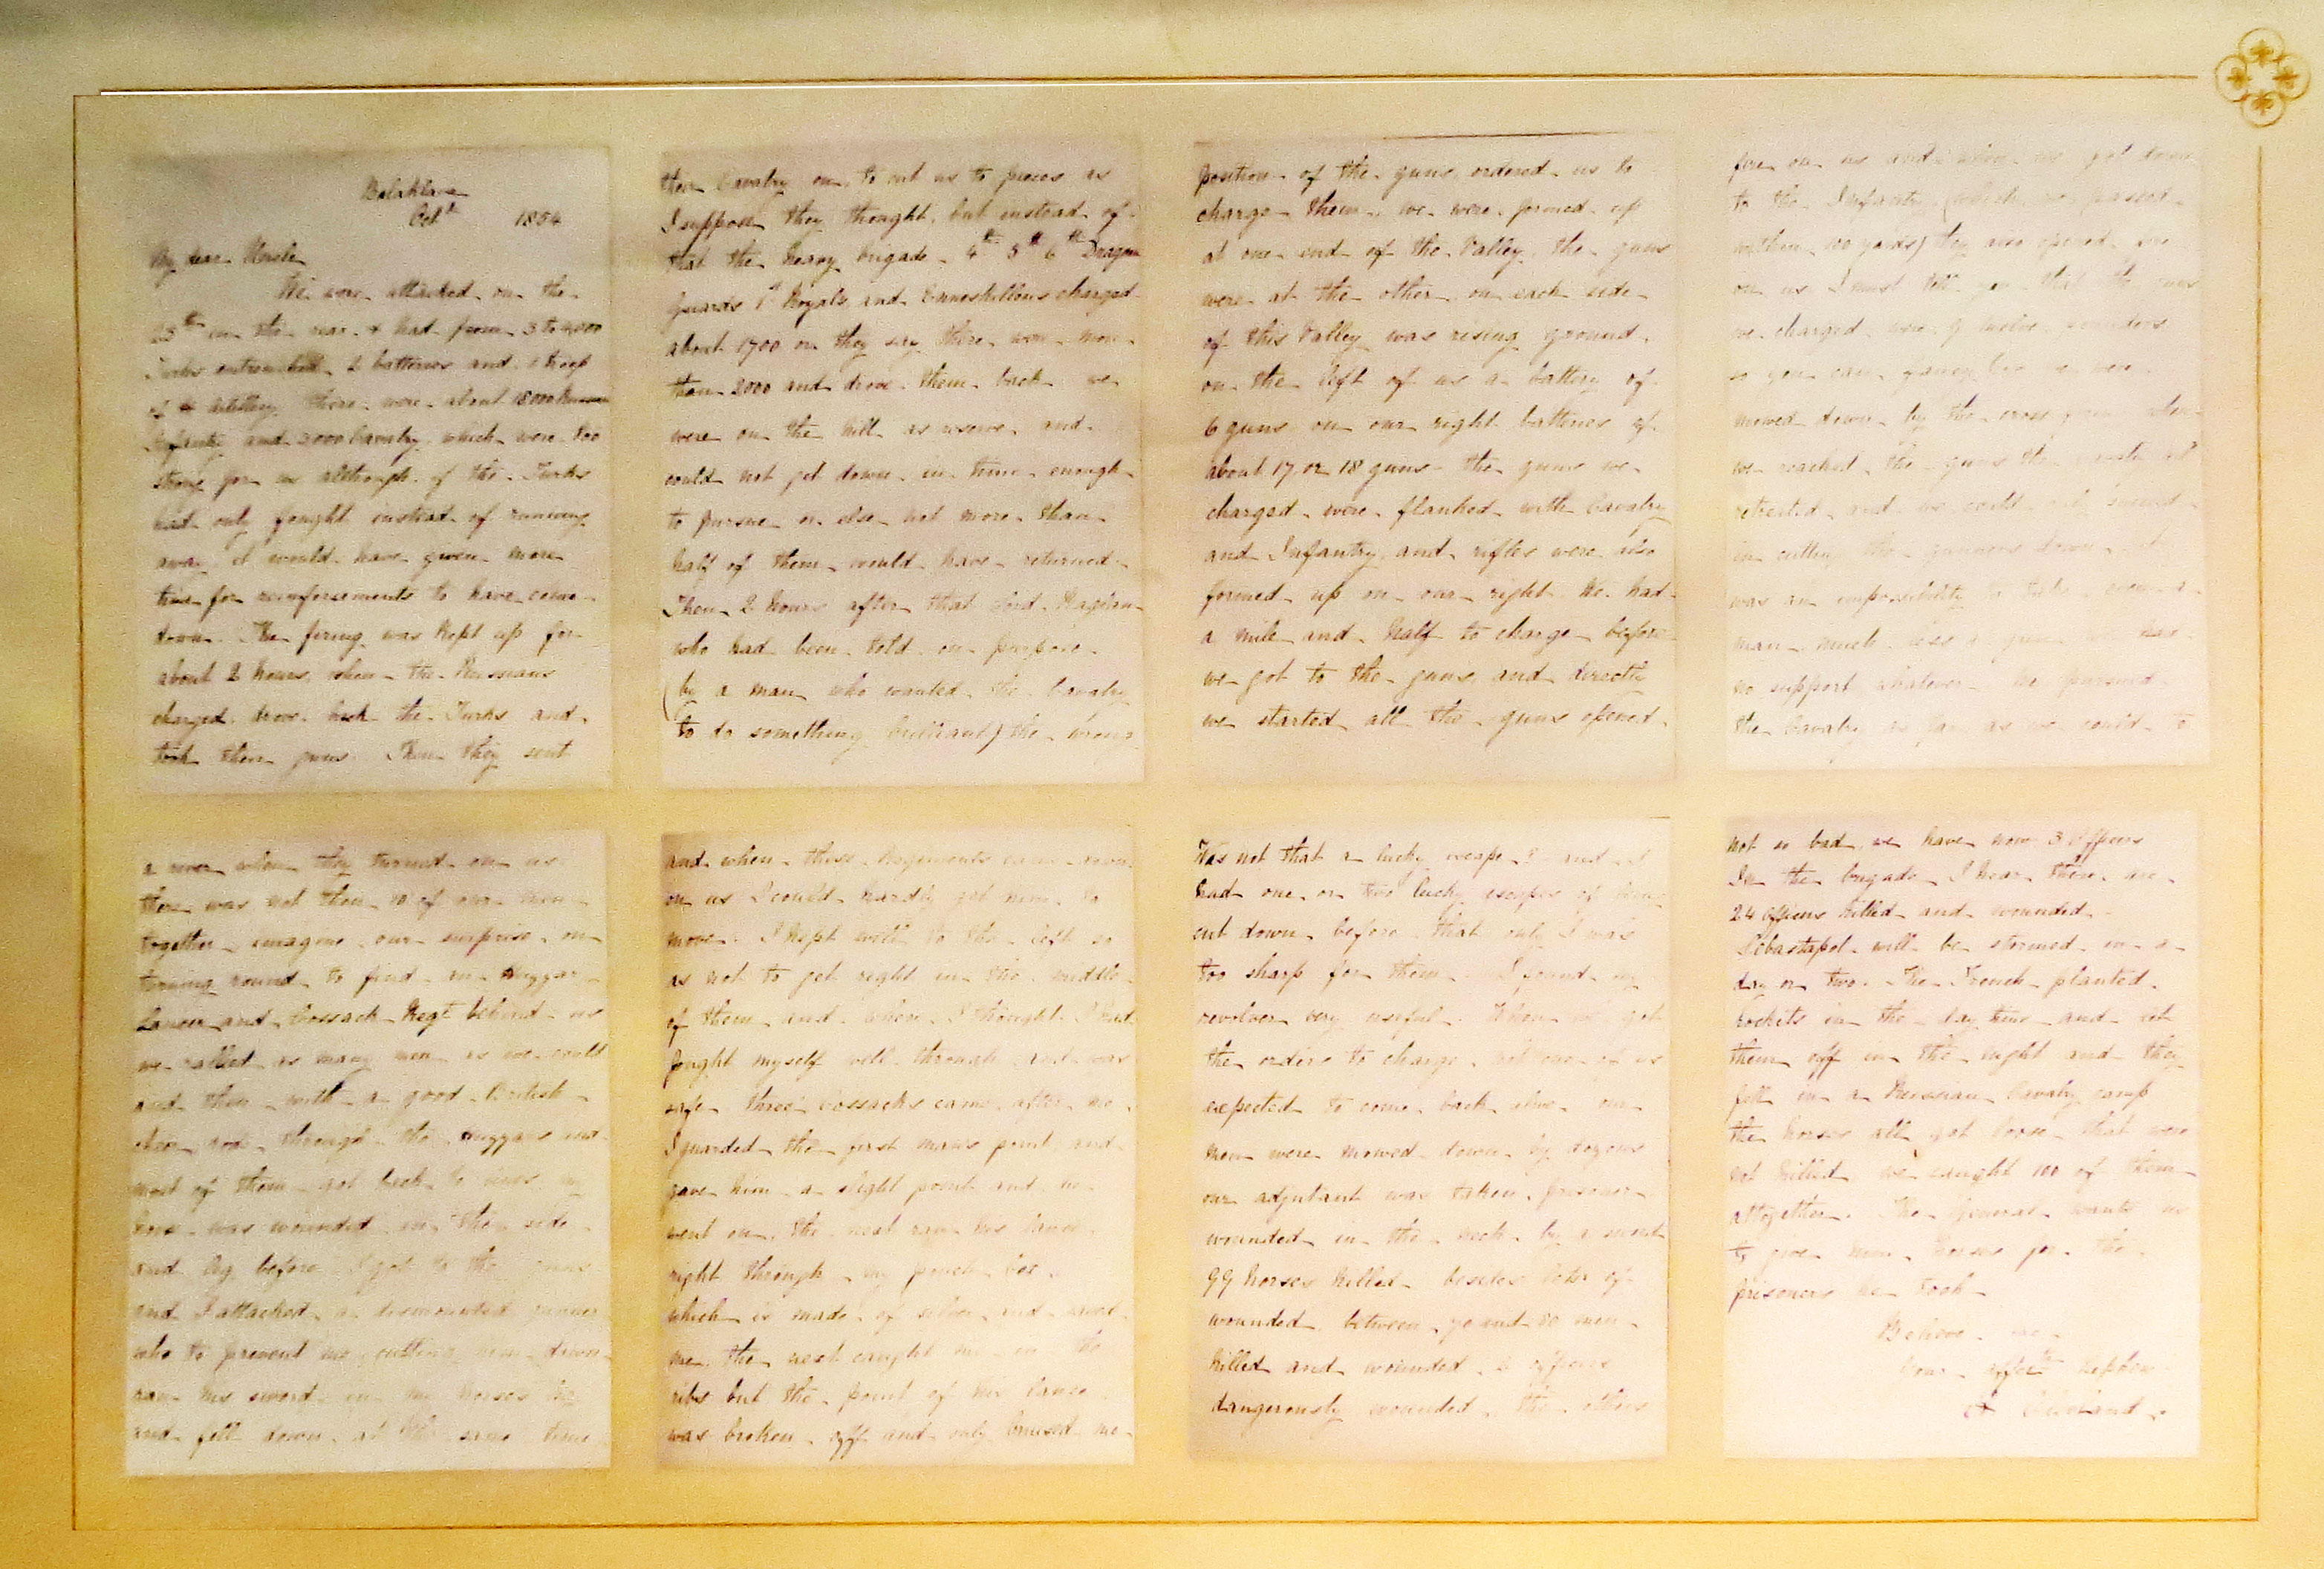 Balaklava
Oct 1854
My dear Uncle
We were attacked on the
25th in the rear & had from 3 to 4,000
Turks entrenched 2 batteries and a troop
of Artillery there were about 18000 Russian
Infantry and 3000 Cavalry which were too
strong for us although if the Turks
had only fought instead of running
away it would have given more
time for reinforcements to have come
down. The firing was kept up for
about 2 hours when the Russians
charged drove back the Turks and
took their guns. Then they sent
their Cavalry on to cut us to pieces as
I suppose they thought, but instead of
that the heavy brigade 4th 5th 6th Dragoon
Guards 1st Royals and Enneskillens charged
about 1700 or they say there were more
than 2000 and drove them back we
were on the hill as reserve and
could not get down in time enough
to pursue or else not more than
half of them would have returned
Then 2 hours after that Lord Raglan
who had been told on purpose
(by a man who wanted the Cavalry
to do something brilliant) the wrong
position of the guns, ordered us to
charge them. we were formed up
at one end of the Valley the guns
were at the other on each side
of this Valley was rising ground.
on the left of us a battery of
6 guns on our right batteries of
about 17 or 18 guns the guns we
charged were flanked with Cavalry
and Infantry and rifles were also
formed up on our right. We had
a mile and half to charge before
we got to the guns and directly
we started all the guns opened
fire on us and when we got down
to the Infantry (which we passed
within 100 yards) they also opened fire
on us I must tell you that the guns
we charged were of twelve pounders
so you can fancy how we were
mowed down by the cross fire when
we reached the guns the
retreated and we
in cutting the gunners down it
was an impossibility to take even a
man much less a gun had
no support whatever we pursued
the Cavalry as far as we could to
a river when they turned on us
there was not then 10 of our men
together imagine our surprise on
turning round to find an Huggar
Lancer and Cossack Regt behind us
we rallied as many men as we could
and then with a good British
cheer rode through the Huggars and
most of them got back to lines my
horse was wounded in the side
and leg before I got to the guns
and I attacked a dismounted gunner
who to prevent me cutting him down
ran his sword in my horses
and fell down at the same time
and when these Regiments came down
on us I could hardly get him to
move. I kept well to the left so
as not to get right in the middle
of them and when I thought I had
fought myself well through and was
safe three Cossacks came after me
I guarded the first mans point and
gave him a slight point and he
went on, the next ran his lance
right through my pouch box
which is made of silver and saved
me, the next caught me in the
ribs but the point of his lance
was broken off and only bruised me
Was not that a lucky escape? and I
had one or two lucky escapes of being
cut down before that only I was
too sharp for them. I found my
revolver very useful. When we got
the orders to charge not one of us
expected to come back alive our
men were mowed down by dozens
our adjutant was taken prisoner
wounded in the neck by a sword
99 horses killed besides lots of
wounded, between 70 and 80 men
killed and wounded. 2 officers
dangerously wounded, the others
not so bad, we have now 3 Officers
In the brigade I hear there are
24 Officers killed and wounded
Sebastapol will be stormed in a
day or two. The French planted
rockets in the day time and set
them off in the night and they
fell in a Russian Cavalry camp
the horses all got loose that were
not killed we caught 100 of them
altogether. The General wants us
to give him horses for the
prisoners he took
Believe me
Your affect nephew
A Cleveland